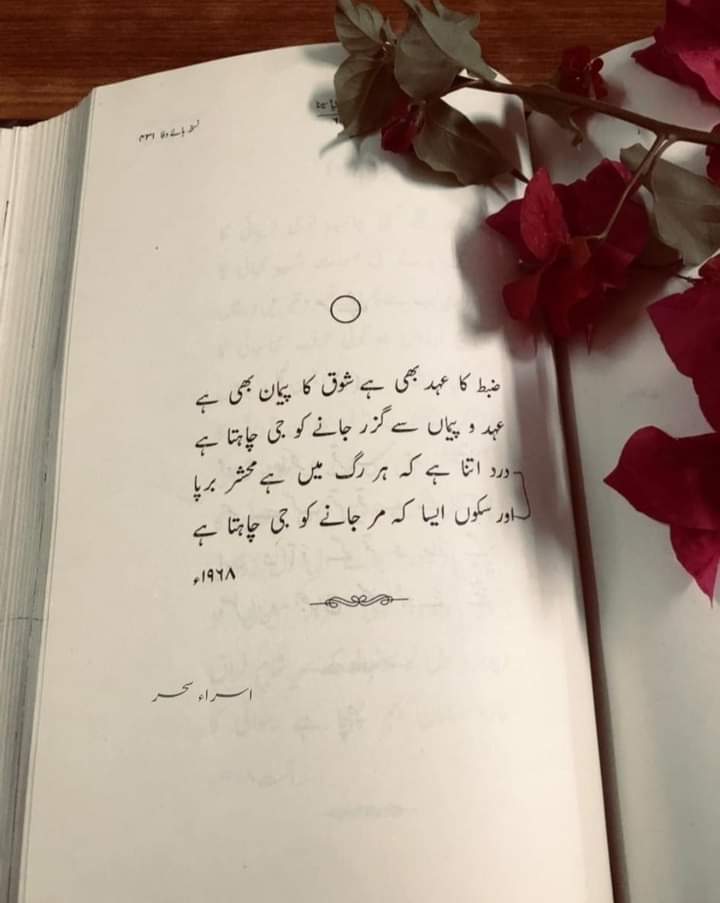 نسخہ ہائے وفا ۴۳۱
ضبط کا عہد بھی ہے شوق کا پیمان بھی ہے
عہد و پیماں سے گزر جانے کو جی چاہتا ہے
درد اتنا ہے کہ ہر رگ میں ہے محشر برپا
اور سکوں ایسا کہ مر جانے کو جی چاہتا ہے
۱۹۶۸ء
اسراء سحر